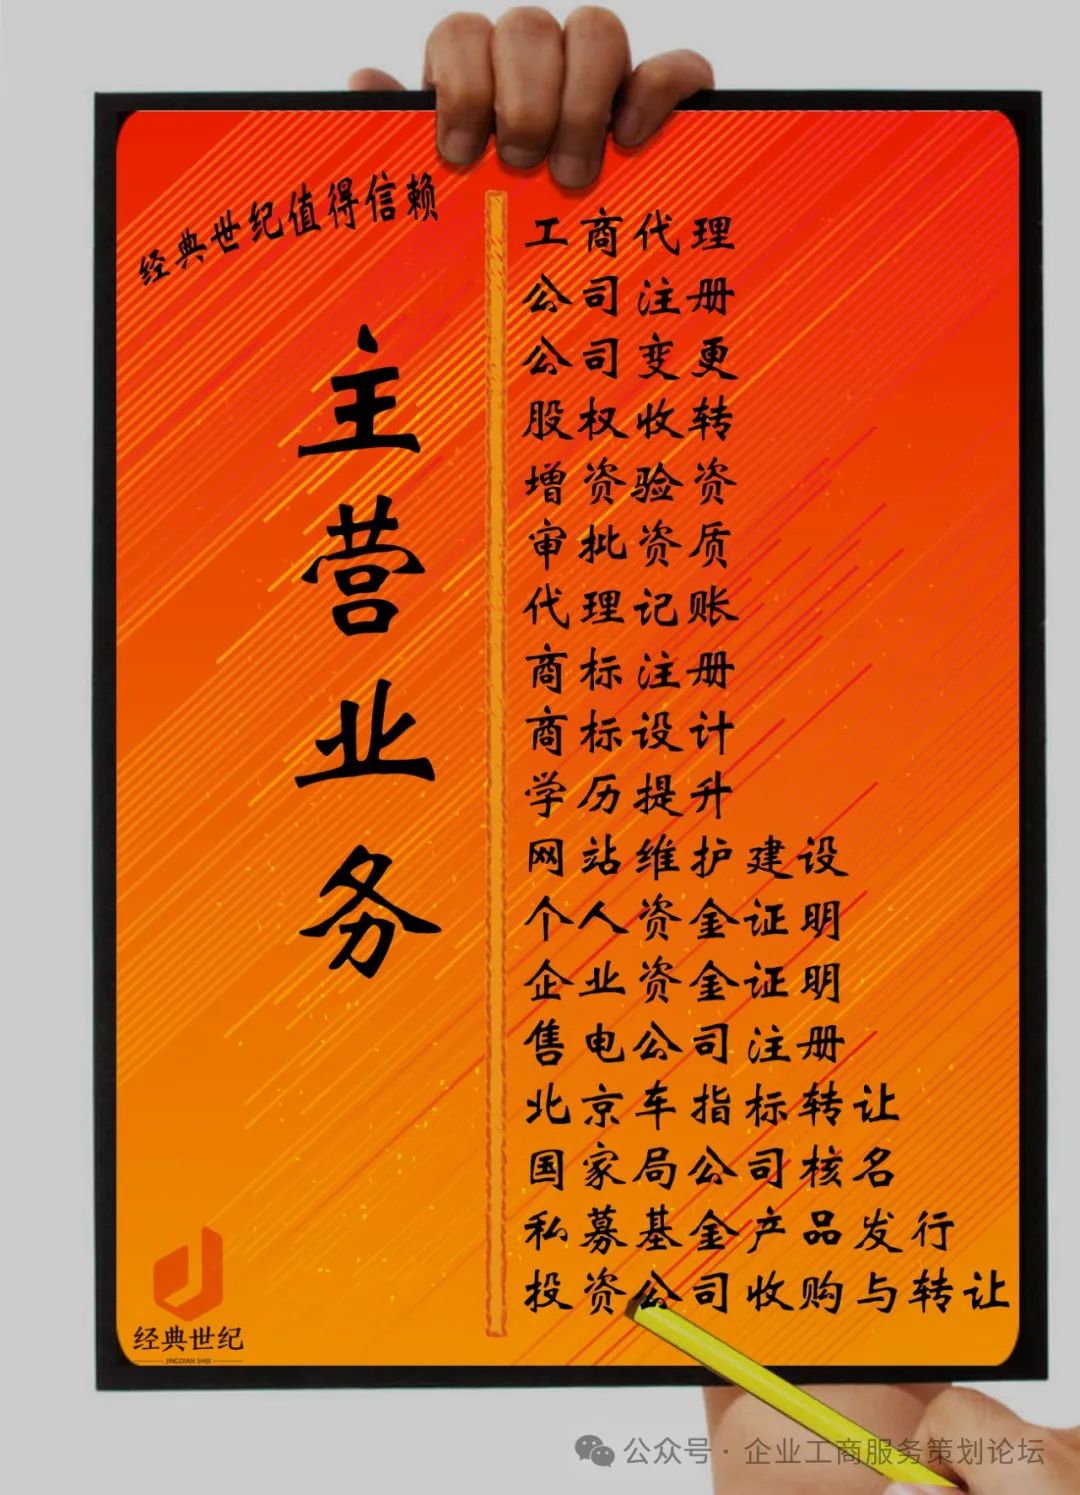 经典世纪值得信赖
主营业务
工商代理
公司注册
公司变更
股权收转
增资验资
审批资质
代理记账
商标注册
商标设计
学历提升
网站维护建设
个人资金证明
企业资金证明
售电公司注册
北京车指标转让
国家局公司核名
私募基金产品发行
投资公司收购与转让
经典世纪
JINGDIAN SHIJI
公众号·企业工商服务策划论坛